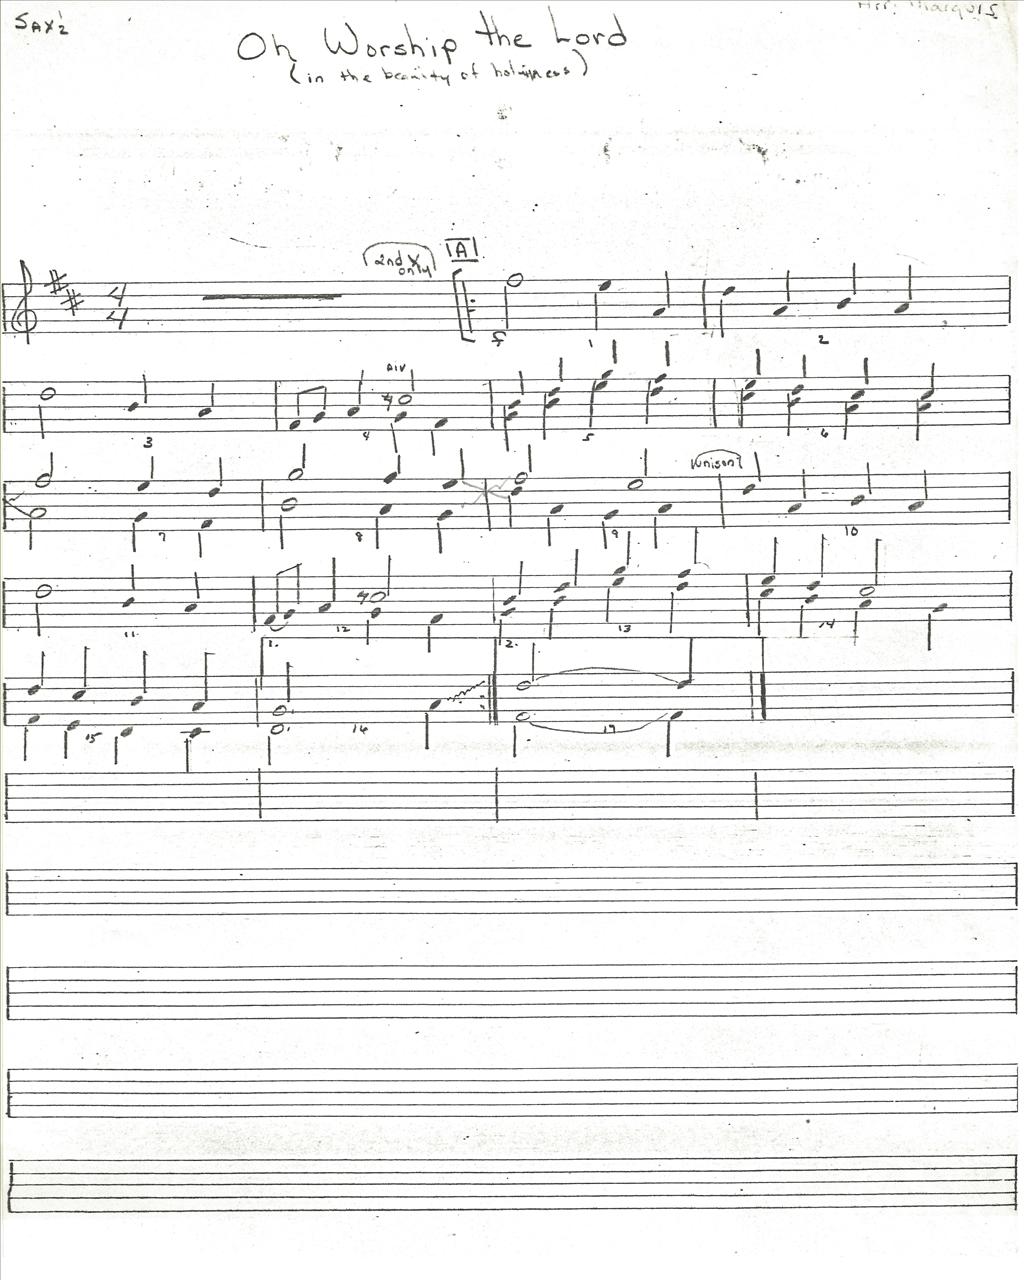 Sax 1/2
Arr. Marquis
Oh Worship the Lord
(in the beauity of holiness)
2nd X only
A
4
4
f
1
2
Div
3
4
5
6
unison
7
8
9
10
11
12
13
14
1.
2.
15
16
17